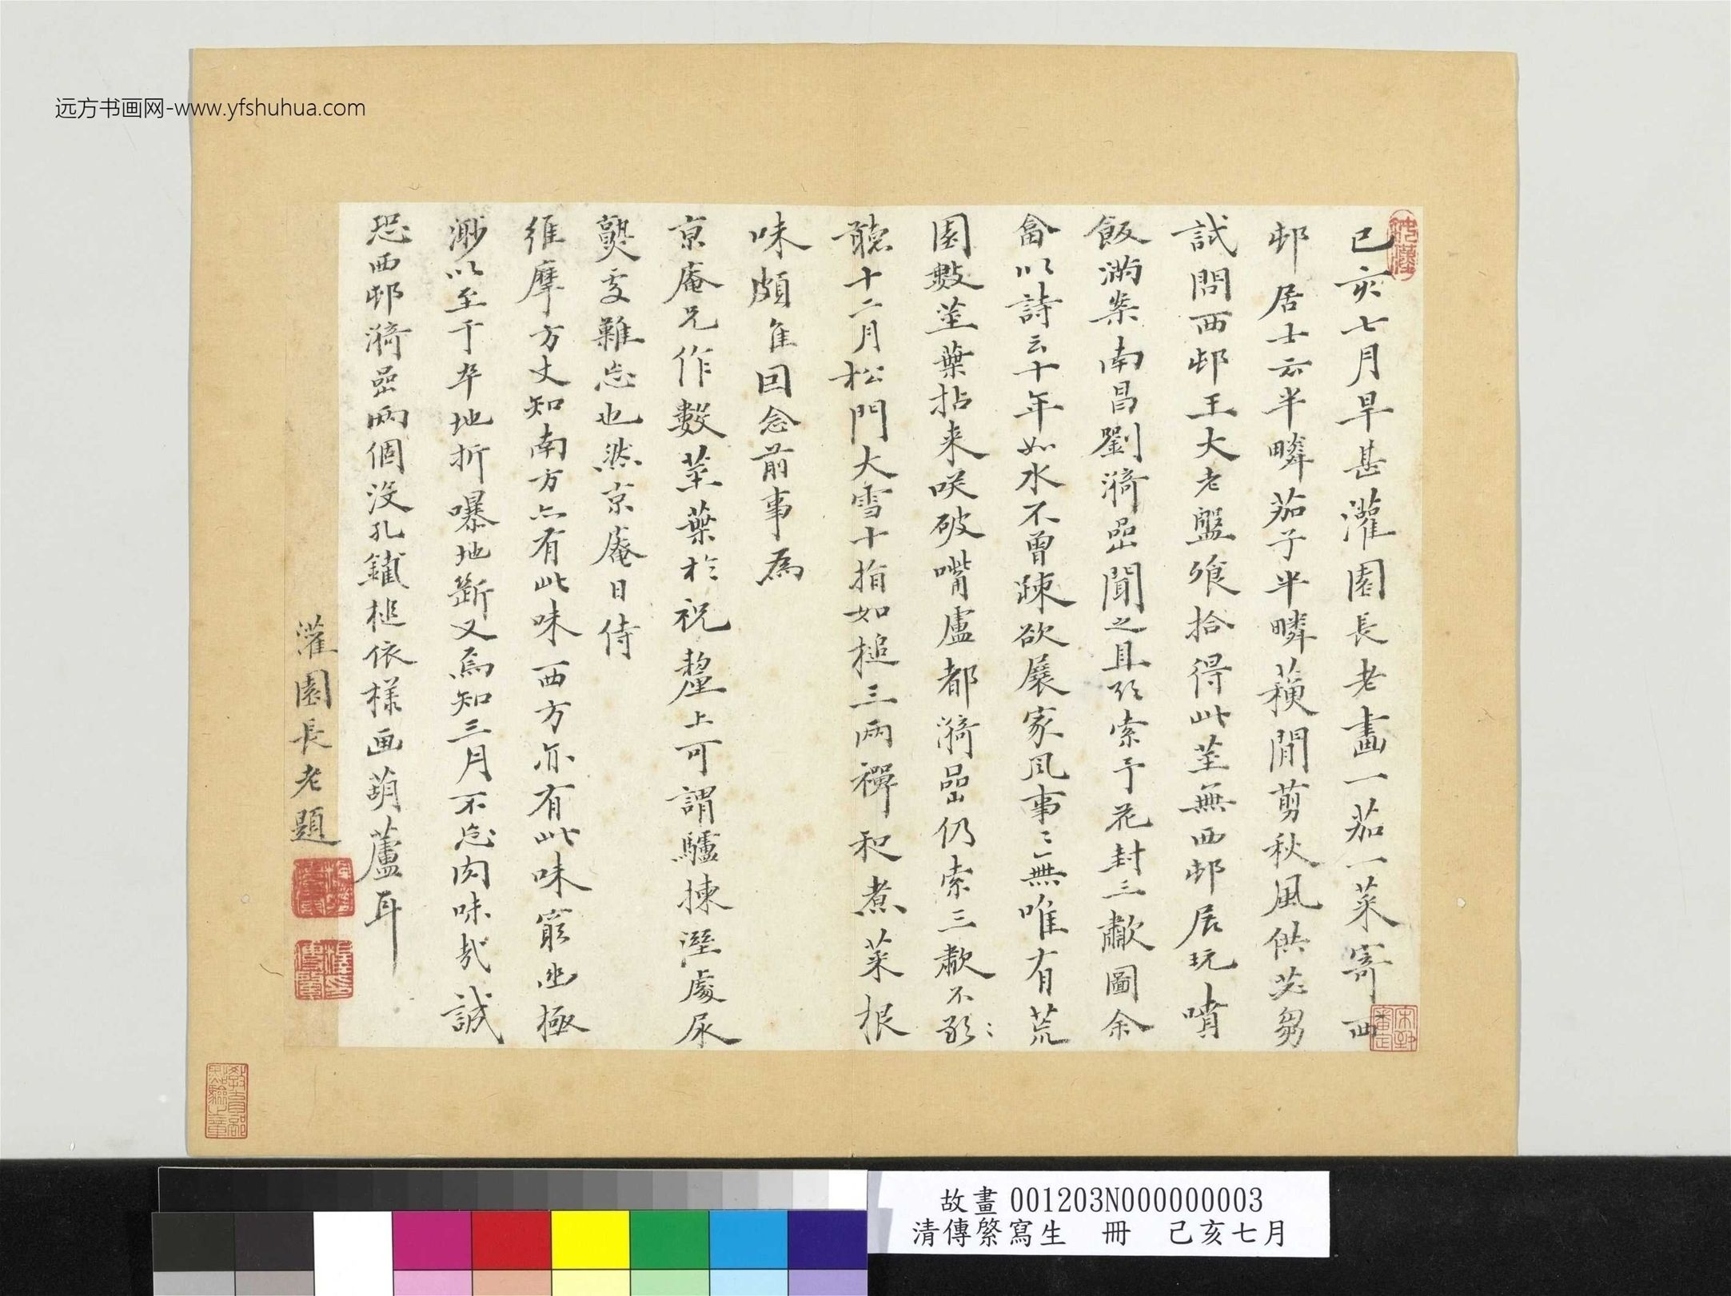 远方书画网-www.yfshuhua.com
己亥七月旱甚灌園長老畫一茄一菜寄西
邨居士云半疄茄子半疄蘈閒剪秋風供苾芻
試問西邨王大老盤飱拾得此莖無西邨居玩噴
飯滿案南昌劉漪嵒聞之且歌索予花封三歗圖余
畣以詩云十年如水不曾疎欲展家風事〻無唯有荒
園數莖葉拈来咲破嘴盧都漪嵒仍索三歗不歇〻
聽十二月松門大雪十指如槌三兩襌和煮菜根
味頗隹回念前事為
京庵兄作數莖葉於祝釐上可謂驢揀溼處尿
熨㚆難忘也然京庵日侍
維摩方丈知南方亦有此味西方亦有此味窮幽極
渺以至于卒地折曝地斷又焉知三月不忘肉味㢤誠
恐西邨漪嵒兩個没孔鐵槌依様画葫蘆耳
灌園長老題
故畫001203N000000003
清傳綮寫生 冊 己亥七月